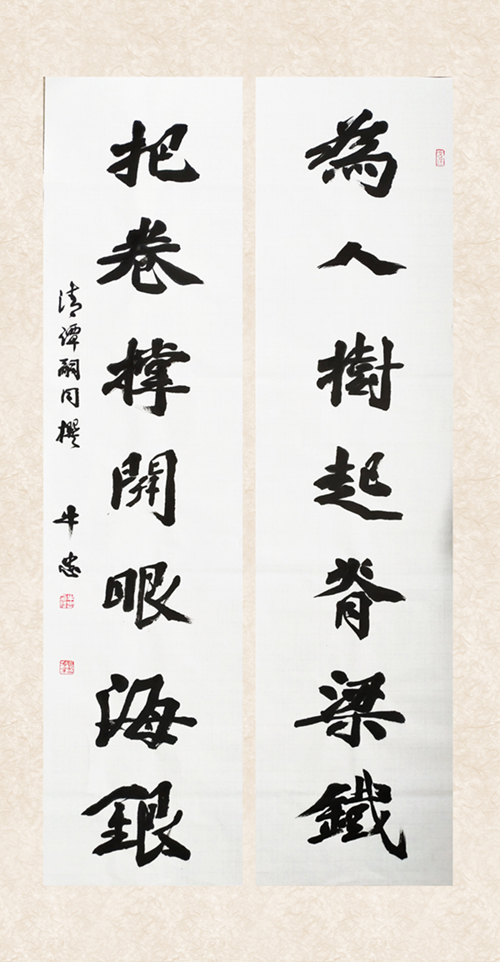 為人樹起脊梁鐵
把卷撑開眼海銀
清譚嗣同撰